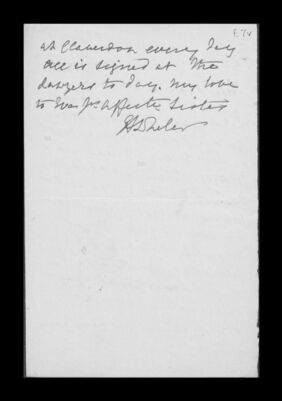 F. 7v
at Claverdon every day
all is signed at the
lawyers to day. My love
to Eva yr affecte Sister